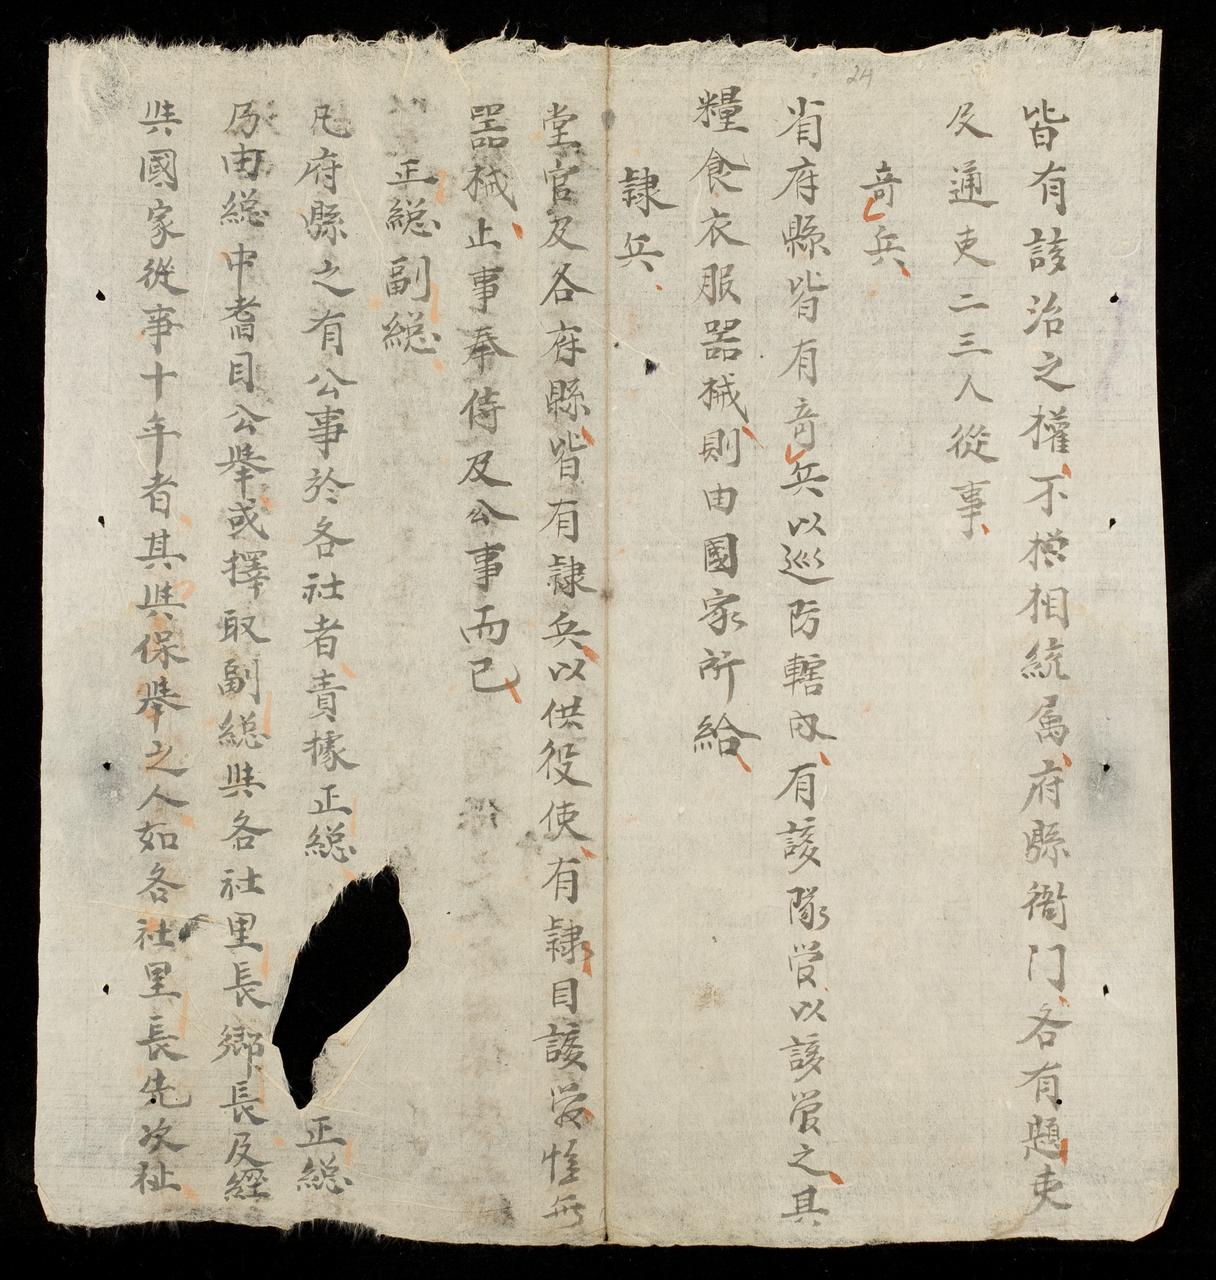 24
皆有該治之權不相統属府縣衙门各有題吏
及通吏二三人從事
奇兵
省府縣皆有奇兵以巡防轄内有該隊管以該管之其
糧食衣服器械則由國家所給
隷兵
堂官及各府縣皆有隷兵以供役使有隷目該管惟無
器械止事奉侍及公事而已
正総副総
凡府縣之有公事於各社者責據正総正総
乃由総中耆目公舉或擇取副総與各社里長鄉長及經
與國家從事十年者其與保舉之人如各社里長先次祉